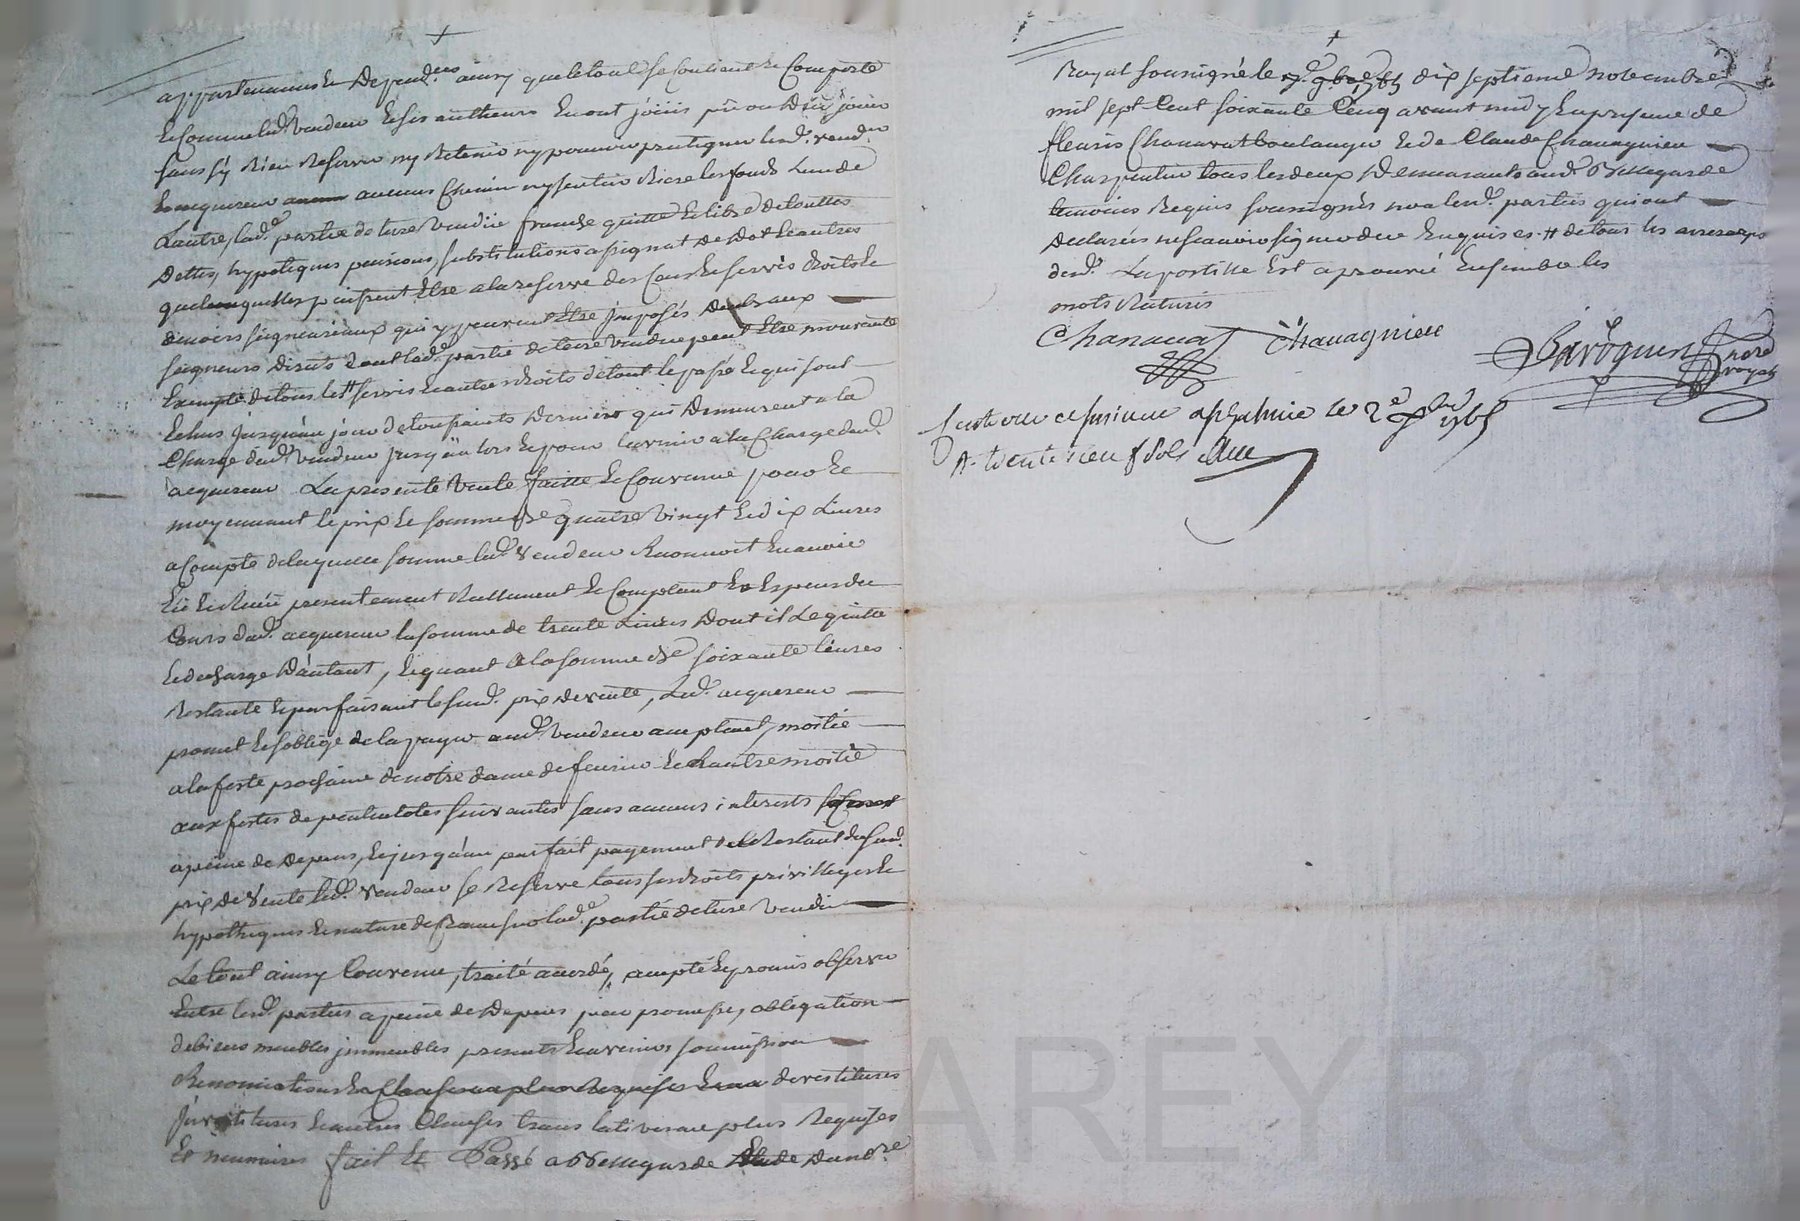 appartenances et Dependces ainsy que le tout se Contient et Comporte
et Comme led. Vendeur et ses autheurs en ont joüis pü ou Dü joüir
sans s'y Rien Reserver ny Retenir ny pouvoir pratiquer led. vendr
aucuns Chemin ny sentier Riere les fonds L'un de
L'autre, lad. partie de terre Vendüe franche quitte et libre de touttes
Dettes, hypoteques pensions, substitutions assignat de Dot et autres
quelconques puissent Etre a la reserve des Cens et servis droits et
devoirs seigneuriaux qui y peuvent Etre jmposés deubs aux
seigneurs Directs dont lad. partie de terre vendue peut Etre mouvante
Exempte de tous les # servis et autres droits de tout le passé et qui sont
Echus jusqu'au jour de toussaints Dernier qui Demeurent a la
Charge dud. Vendeur jusqu'alors et pour l'avenir a la Charge dud.
acquereur La presente Vente faitte et Convenue pour et
moyennant le prix et somme de quatre Vingt et dix Livres
a Compte de laquelle somme led. Vendeur Reconnoit en avoir
Eü et Receü presentement Reellement et Comptant En Especes du
Cours dud. acquereur la somme de trente Livres Dont il Le quitte
et decharge D'autant, et quant a la somme de soixante livres
Restante et parfaisant le sud. prix de vente, Led. acquereur
promet et s'oblige de la payer aud. Vendeur ou plent, moitié
a la feste prochaine de notre dame de fevrier et L'autre moitié
aux festes de pentecotes suivantes sans aucuns interests
a peine de Depens, et jusqu'au parfait payement du Restant du sud.
prix de Vente led. Vendeur se Reserve tous ses droits privilleges et
hypotheques et nature de sur lad. partie de terre Vendüe
Le tout ainsy Convenu, traité accordé, accepté et promis observer
Entre lesd. parties a peine de Depens par promesse, obligation
de biens meubles jmmeubles presents et avenirs soumission
Renonciations Clauses de vestitures
jnvestitures et autres Clauses translatives au plus Requises
Et necessaires fait et Passé a Bellegarde Etude Dud nre
Royal soussigné le 17e 9bre 1765 dix septieme novembre
mil sept Cent soixante Cinq avant midy En presence de
fleuris Chanavat boulanger et de Claude Chavagnieu
Charpentier tous les deux Demeurants aud. Bellegarde
temoins Requis soussignés non lesd. parties qui ont
Declarés ne scavoir signer de ce Enquises # de tous les arrerages
desd. La postille Est aprouvé Ensemble les
mots Raturés
Chanavat Chavagnieu
nre royal
a St Galmie le 2e Xbre 1765